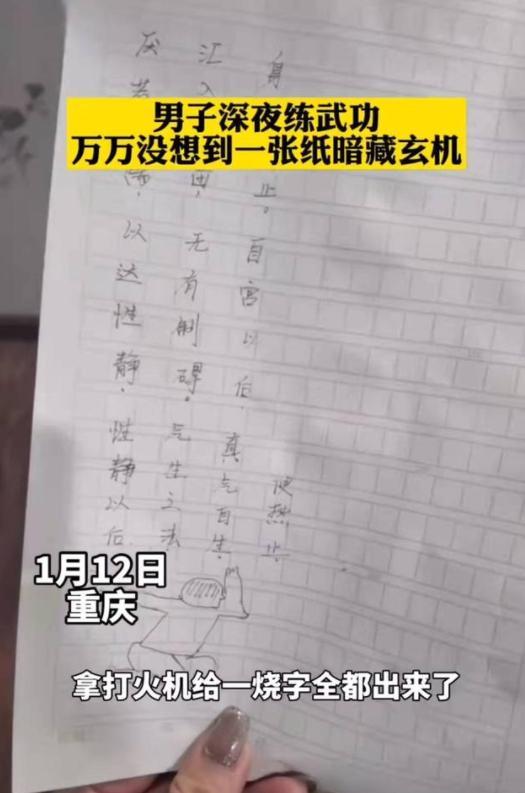 男子深夜练武功
万万没想到一张纸暗藏玄机
便热止.
身
止。自宫以后,真气自生.
汇入
田,无有制碍.气生之法
厌
以达性静.性静以后
1月12日
重庆
拿打火机给一烧字全都出来了